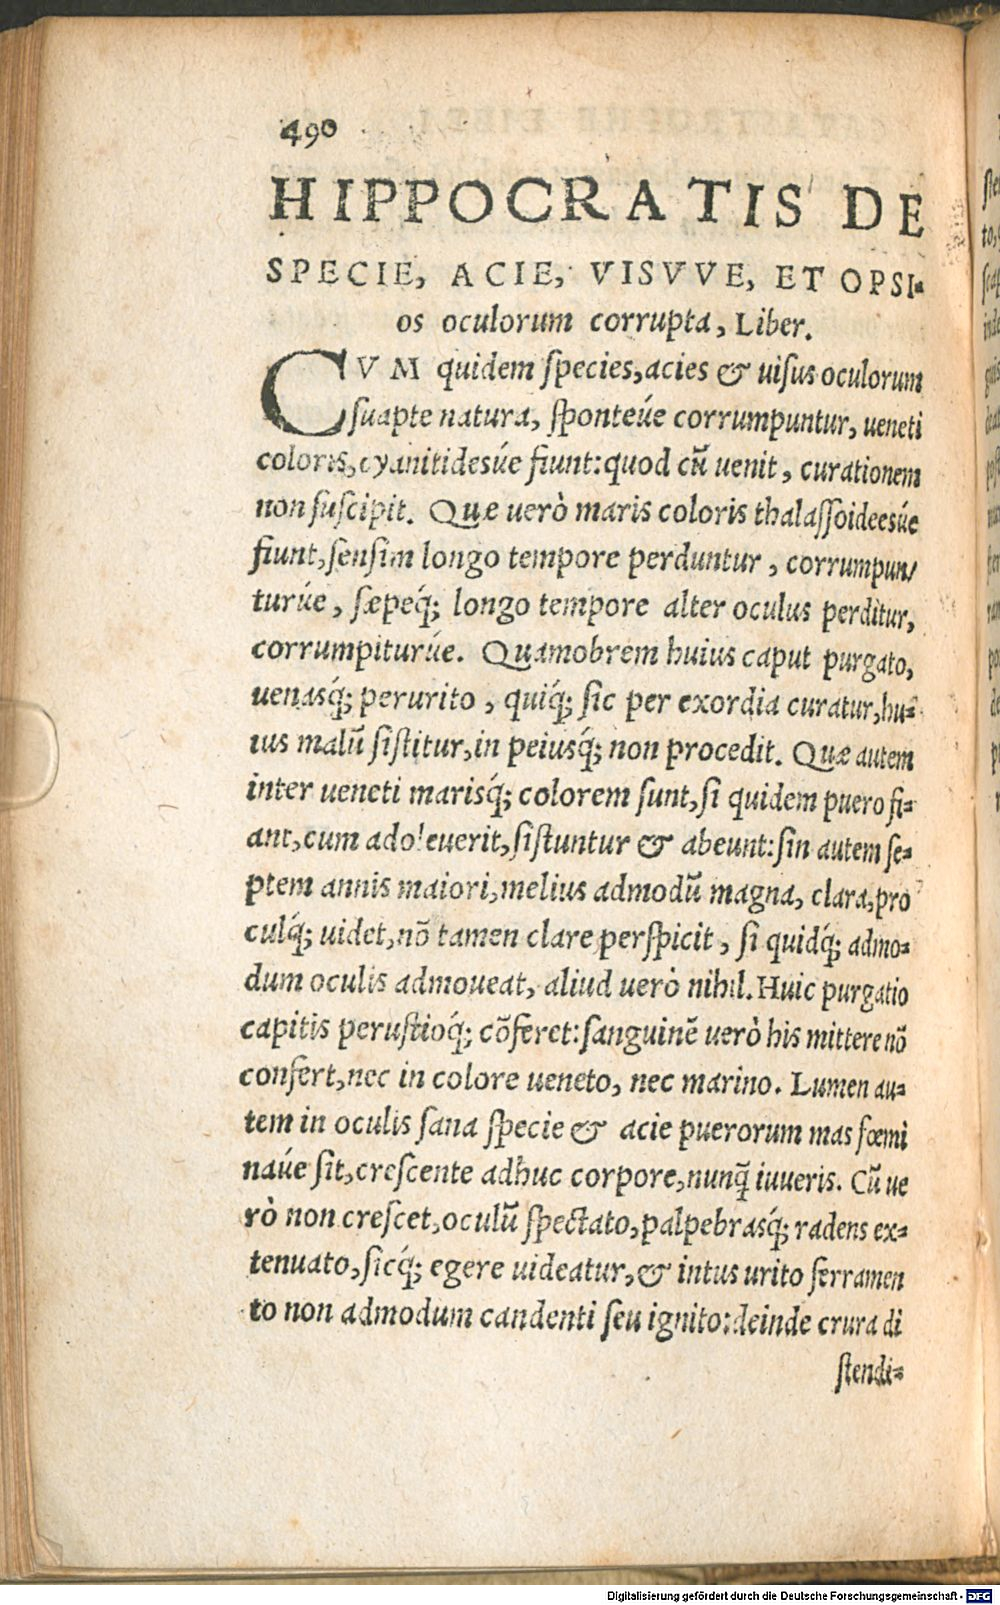 490
HIPPOCRATIS DE
SPECIE, ACIE, VISVVE, ET OPSI-
os oculorum corrupta, Liber.
CVM quidem ſpecies, acies & uiſus oculorum
ſuapte natura, ſponteúe corrumpuntur, ueneti
coloris, cyanitidesúe fiunt: quod cũ uenit, curationem
non ſuſcipit. Quæ uerò maris coloris thalaſſoideesúe
fiunt, ſenſim longo tempore perduntur, corrumpun/
turúe, ſæpeq́; longo tempore alter oculus perditur,
corrumpiturúe. Quamobrem huius caput purgato,
uenasq́; perurito, quiq́; ſic per exordia curatur, hu-
ius malũ ſiſtitur, in peiusq́; non procedit. Quæ autem
inter ueneti marisq́; colorem ſunt, ſi quidem puero fi-
ant, cum adoleuerit, ſiſtuntur & abeunt: ſin autem ſe-
ptem annis maiori, melius admodũ magna, clara, pro
culq́; uidet, nõ tamen clare perſpicit, ſi quidq́; admo-
dum oculis admoueat, aliud uerò nihil. Huic purgatio
capitis peruſtioq́; cõferet: ſanguinẽ uerò his mittere nõ
confert, nec in colore ueneto, nec marino. Lumen au-
tem in oculis ſana ſpecie & acie puerorum mas fœmi
naúe ſit, creſcente adhuc corpore, nunq̃ iuueris. Cũ ue
rò non creſcet, oculũ ſpectato, palpebrasq́; radens ex-
tenuato, ſicq́; egere uideatur, & intus urito ferramen
to non admodum candenti ſeu ignito: deinde crura di
ſtendi-
Digitalisierung gefördert durch die Deutsche Forschungsgemeinschaft - DFG